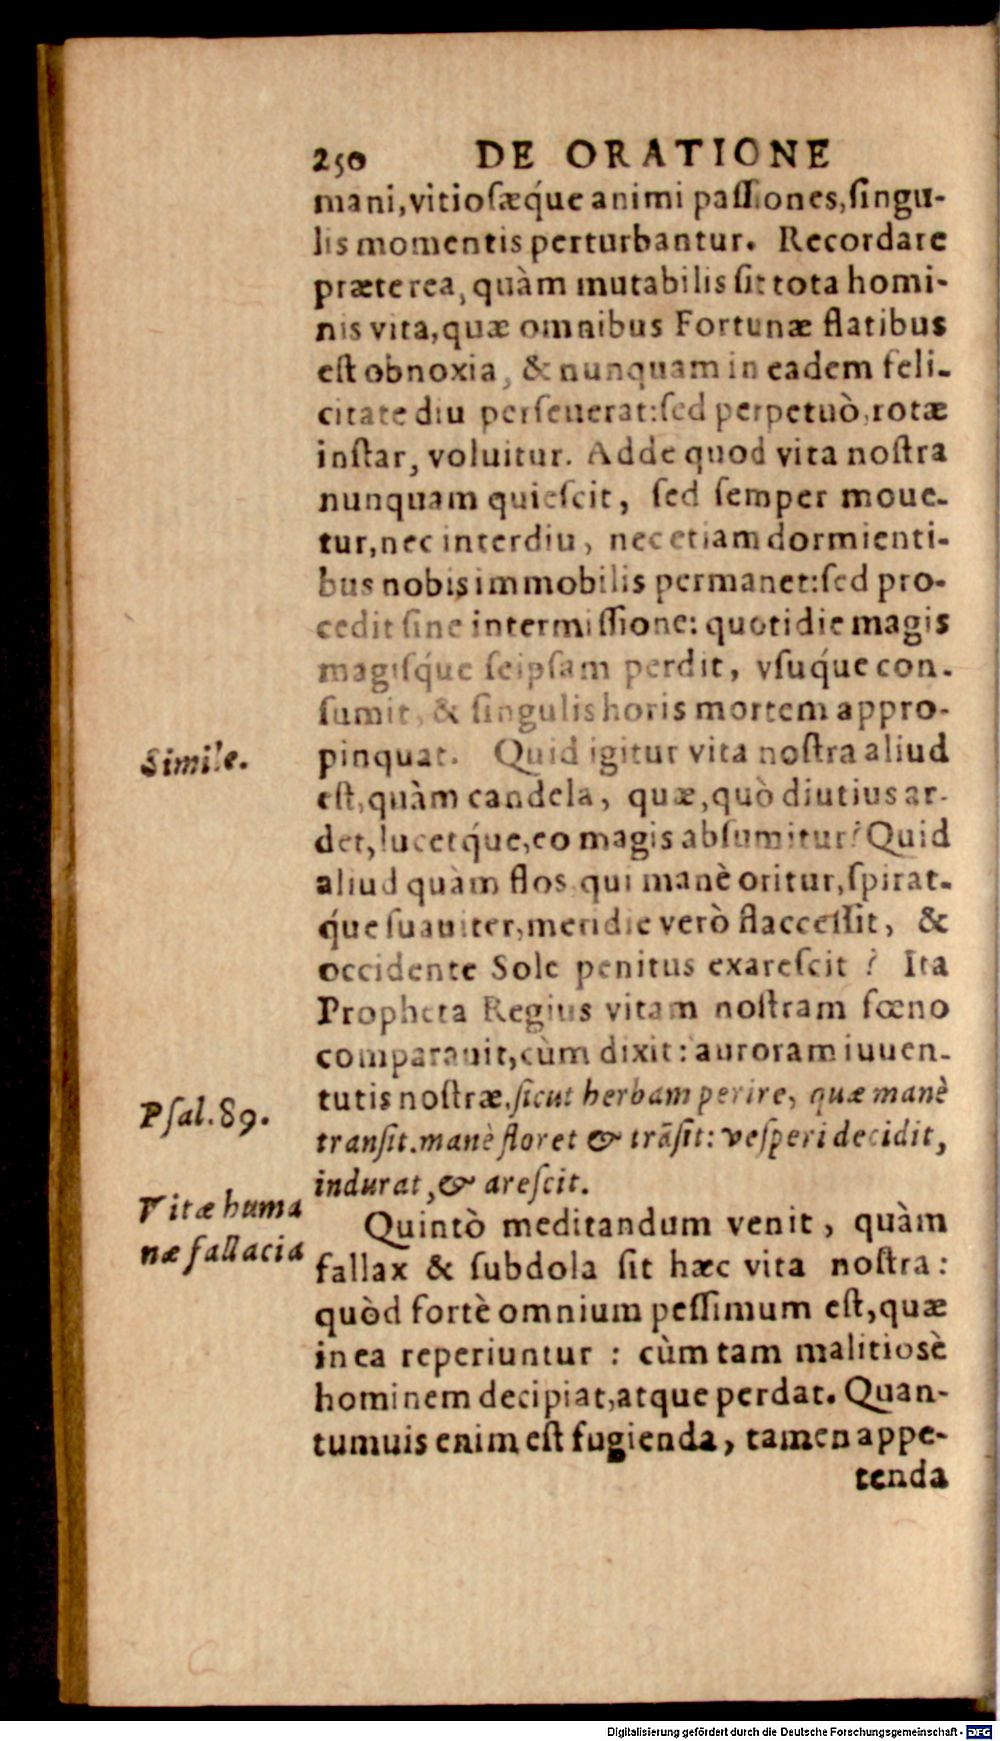 250 DE ORATIONE
mani,vitiosæq́ue animi passiones,singu-
lis momentis perturbantur. Recordare
præterea, quàm mutabilis sit tota homi-
nis vita,quæ omnibus Fortunæ flatibus
est obnoxia, & nunquam in eadem feli-
citate diu perseuerat:sed perpetuò,rotæ
instar, voluitur. Adde quod vita nostra
nunquam quiescit, sed semper moue-
tur,nec interdiu, nec etiam dormienti-
bus nobis immobilis permanet:sed pro-
cedit sine intermissione: quotidie magis
magisq́ue seipsam perdit, vsuq́ue con-
sumit, & singulis horis mortem appro-
Simile.
pinquat. Quid igitur vita nostra aliud
est,quàm candela, quæ,quò diutius ar-
det,lucetq́ue,eo magis absumitur? Quid
aliud quàm flos qui manè oritur,spirat-
q́ue suauiter,meridie verò flaccessit, &
occidente Sole penitus exarescit? Ita
Propheta Regius vitam nostram fœno
comparauit,cùm dixit: auroram iuuen-
Psal.89.
tutis nostræ,sicut herbam perire, quæ manè
transit.manè floret & trãsit: vesperi decidit,
indurat,& arescit.
Vitæ huma
næ fallacia
Quintò meditandum venit, quàm
fallax & subdola sit hæc vita nostra:
quòd fortè omnium pessimum est,quæ
in ea reperiuntur : cùm tam malitiosè
hominem decipiat,atque perdat. Quan-
tumuis enim est fugienda, tamen appe-
tenda
Digitalisierung gefördert durch die Deutsche Forschungsgemeinschaft - DFG